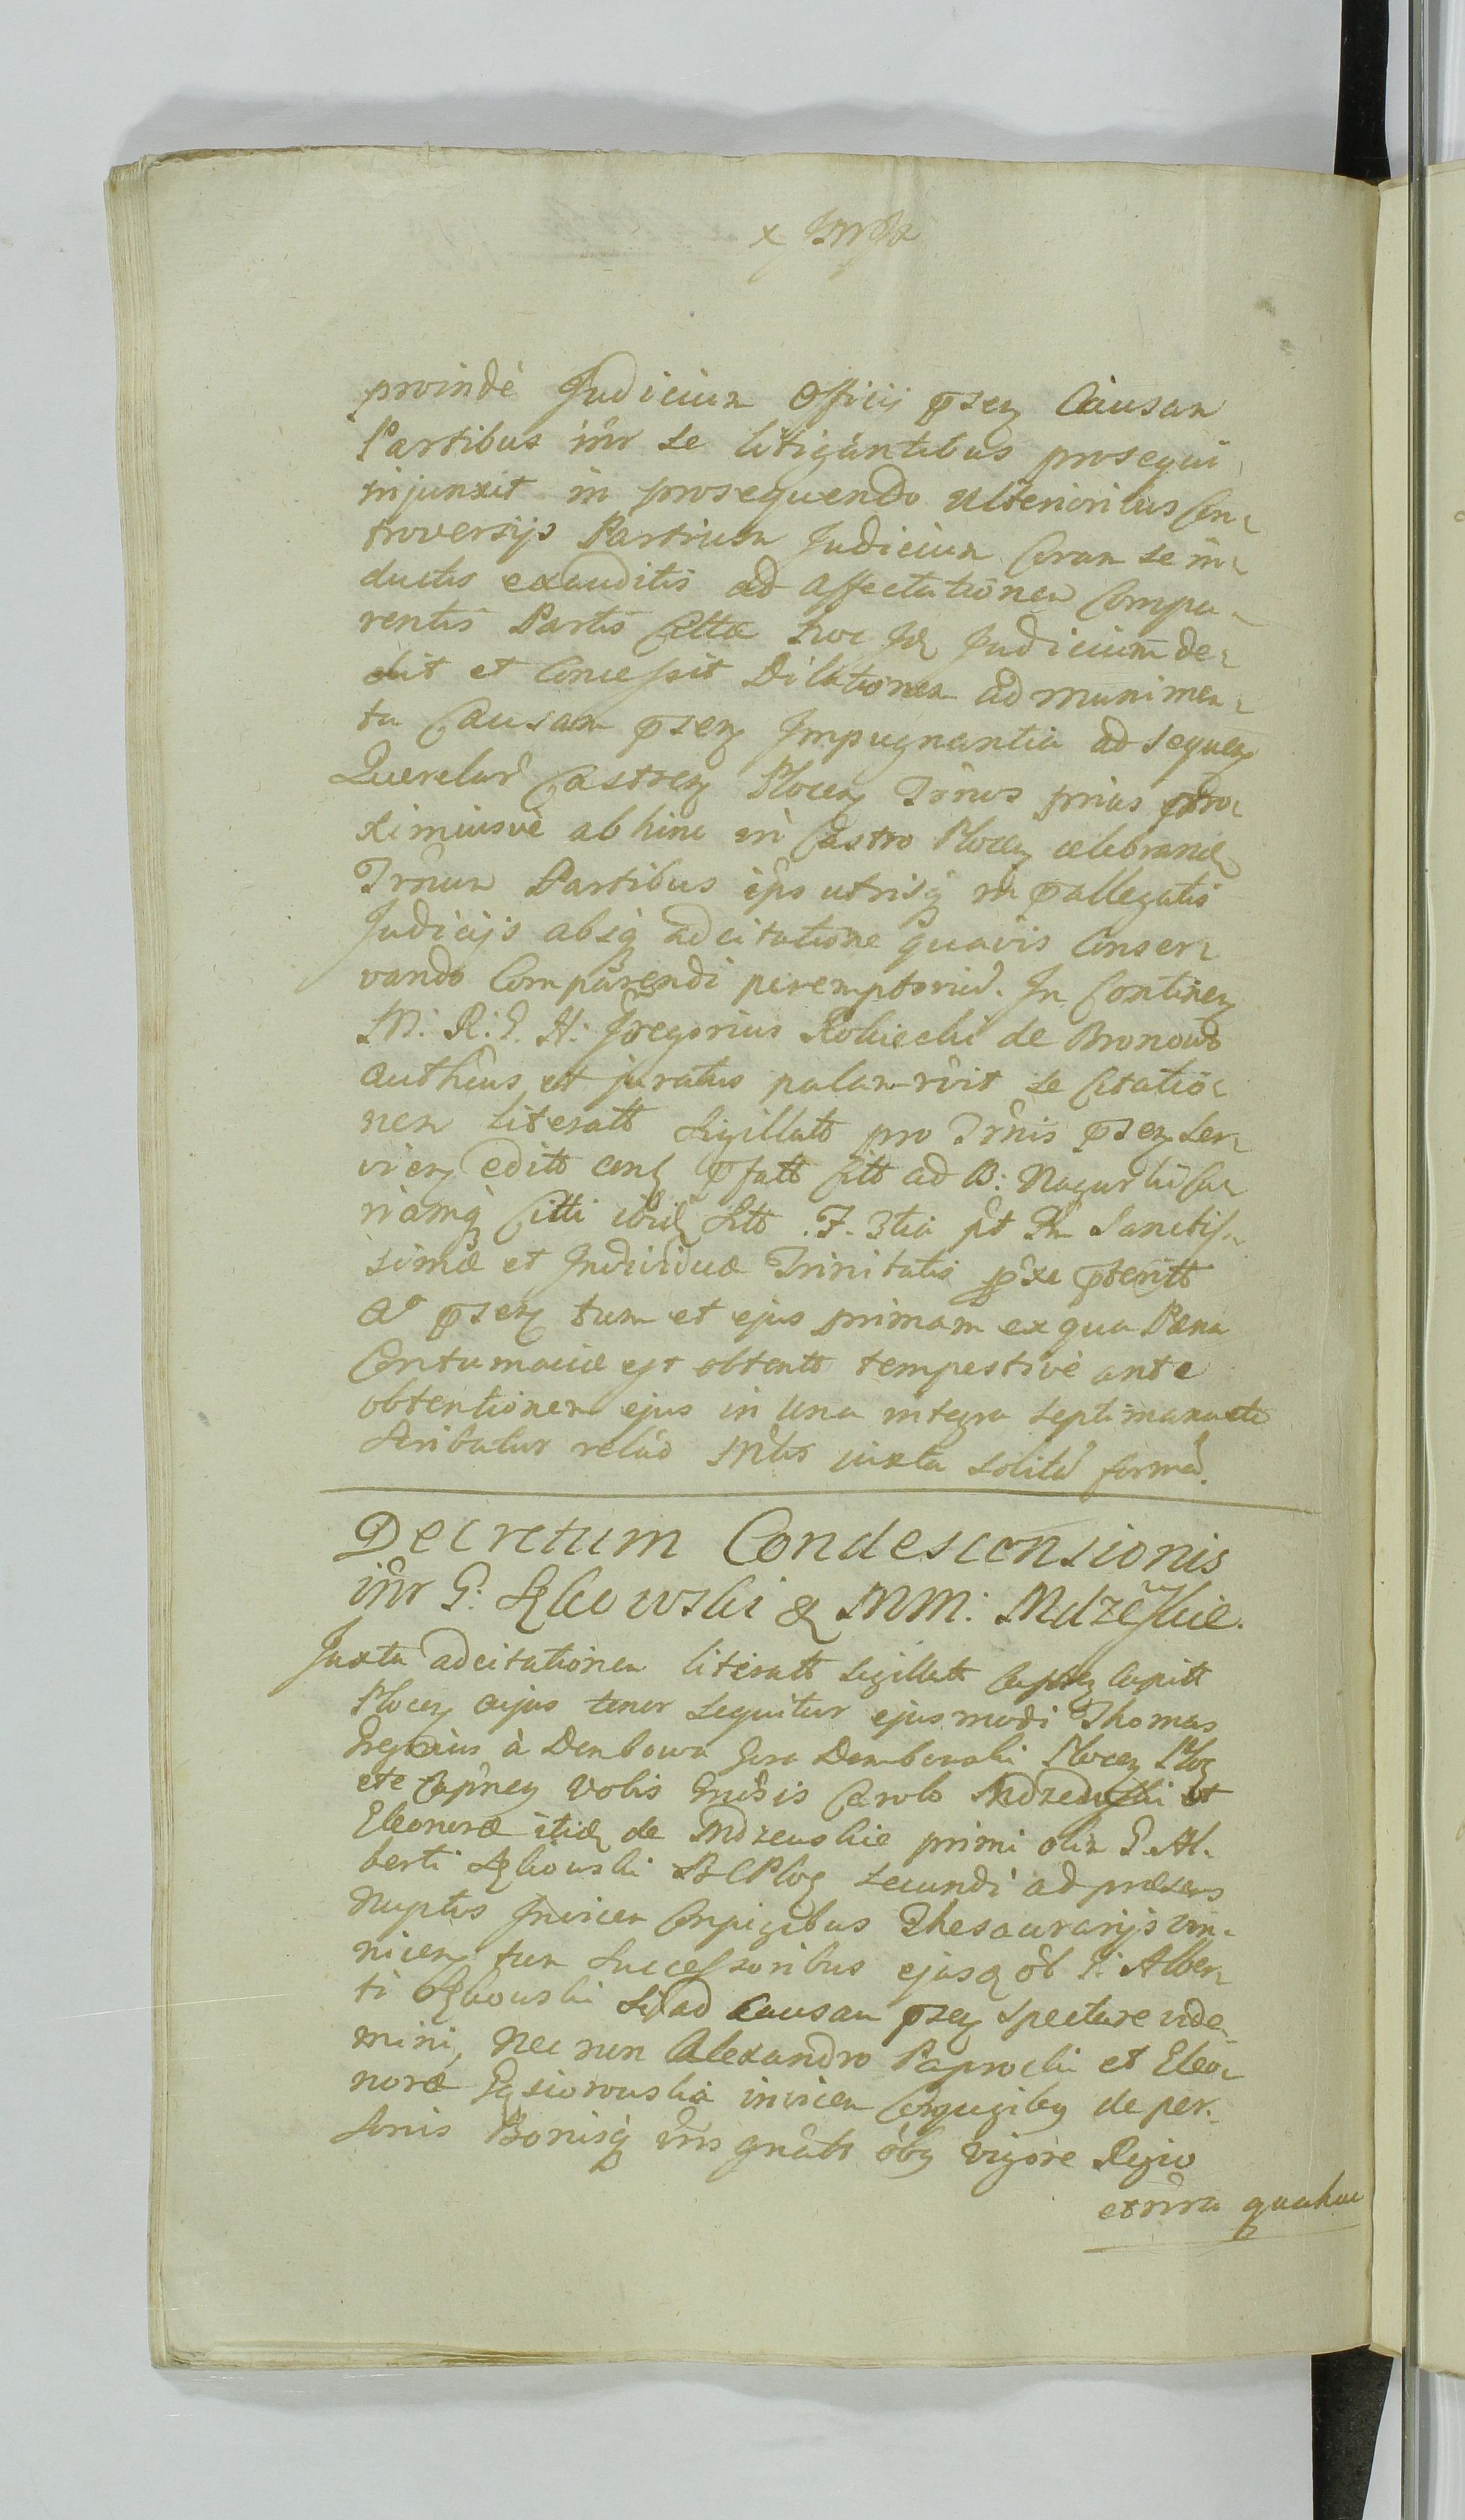 proindè Judicium Officii pñsen Causam
Partibus inr se litigantibus prosequi
injunxit in prosequendo ulterioribus Con-
troversijs Partium Judicium Coram se in-
ductis exauditis ad affectationem Compa-
rentis Partis Cittae hoc Id Judicium de-
dit et Concessit Dilationem ad munimen-
ta Causam pñsen Impugnantia ad sequen
Querelar Castren Plocen Trnos prius pro-
ximiusvè abhinc in Castro Plocen celebrand
Trnum Partibus ips utrisq in pallegatis
Judicijs absq adcitatione quavis Conser-
vando Comparendi peremptorie. In Continen
M: R: G. H: Gregorius Robiecki de Bronowo
authens et juratus palam rvit se Citatio-
nem literatt Sigillatt pro Trnis pñsen ser-
vien editt pfatt Citt ad B: Nagurki Cu-
riamq Citti ibid Sitt F. 3tia pt Sanctis-
simae et Individuae Trinitatis pxe pteritt
Ao pñsen tum et ejus primam ex qua Paena
Contumaciae est obtentt tempestivè ante
obtentionem ejus in una integra septimana etc
Scribatur relao Mlis iuxta solita forma.
Decretum Condescensionis
inr G: Lgkowski & MM: Mdzeskie.
Juxta adcitationem literatt Sigillatt Capitt
Plocen cujus tenor sequitur ejusmodi Thomas
Gregorius à Dembowa Gora Dembowski Plocen Plos
etc Capney Vobis Gnosis Carolo Mdzewski et
Eleonorae itid de Mdzewskie primi olim G. Al-
berti Lgkowski secundi ad praesens
Nuptis Invicem Conjugibus Thesaurarijs Win-
nicen tum Successoribus ejusd ol G: Alber-
ti Lgkowski ad Causam pñsen spectare vide-
mini, nec non Alexandro Paprocki et Eleo-
norae Gąsiorowska invicem Conjugibus de per-
sonis Bonisq vris gnalt oby vigore Regio
et nra qua hac